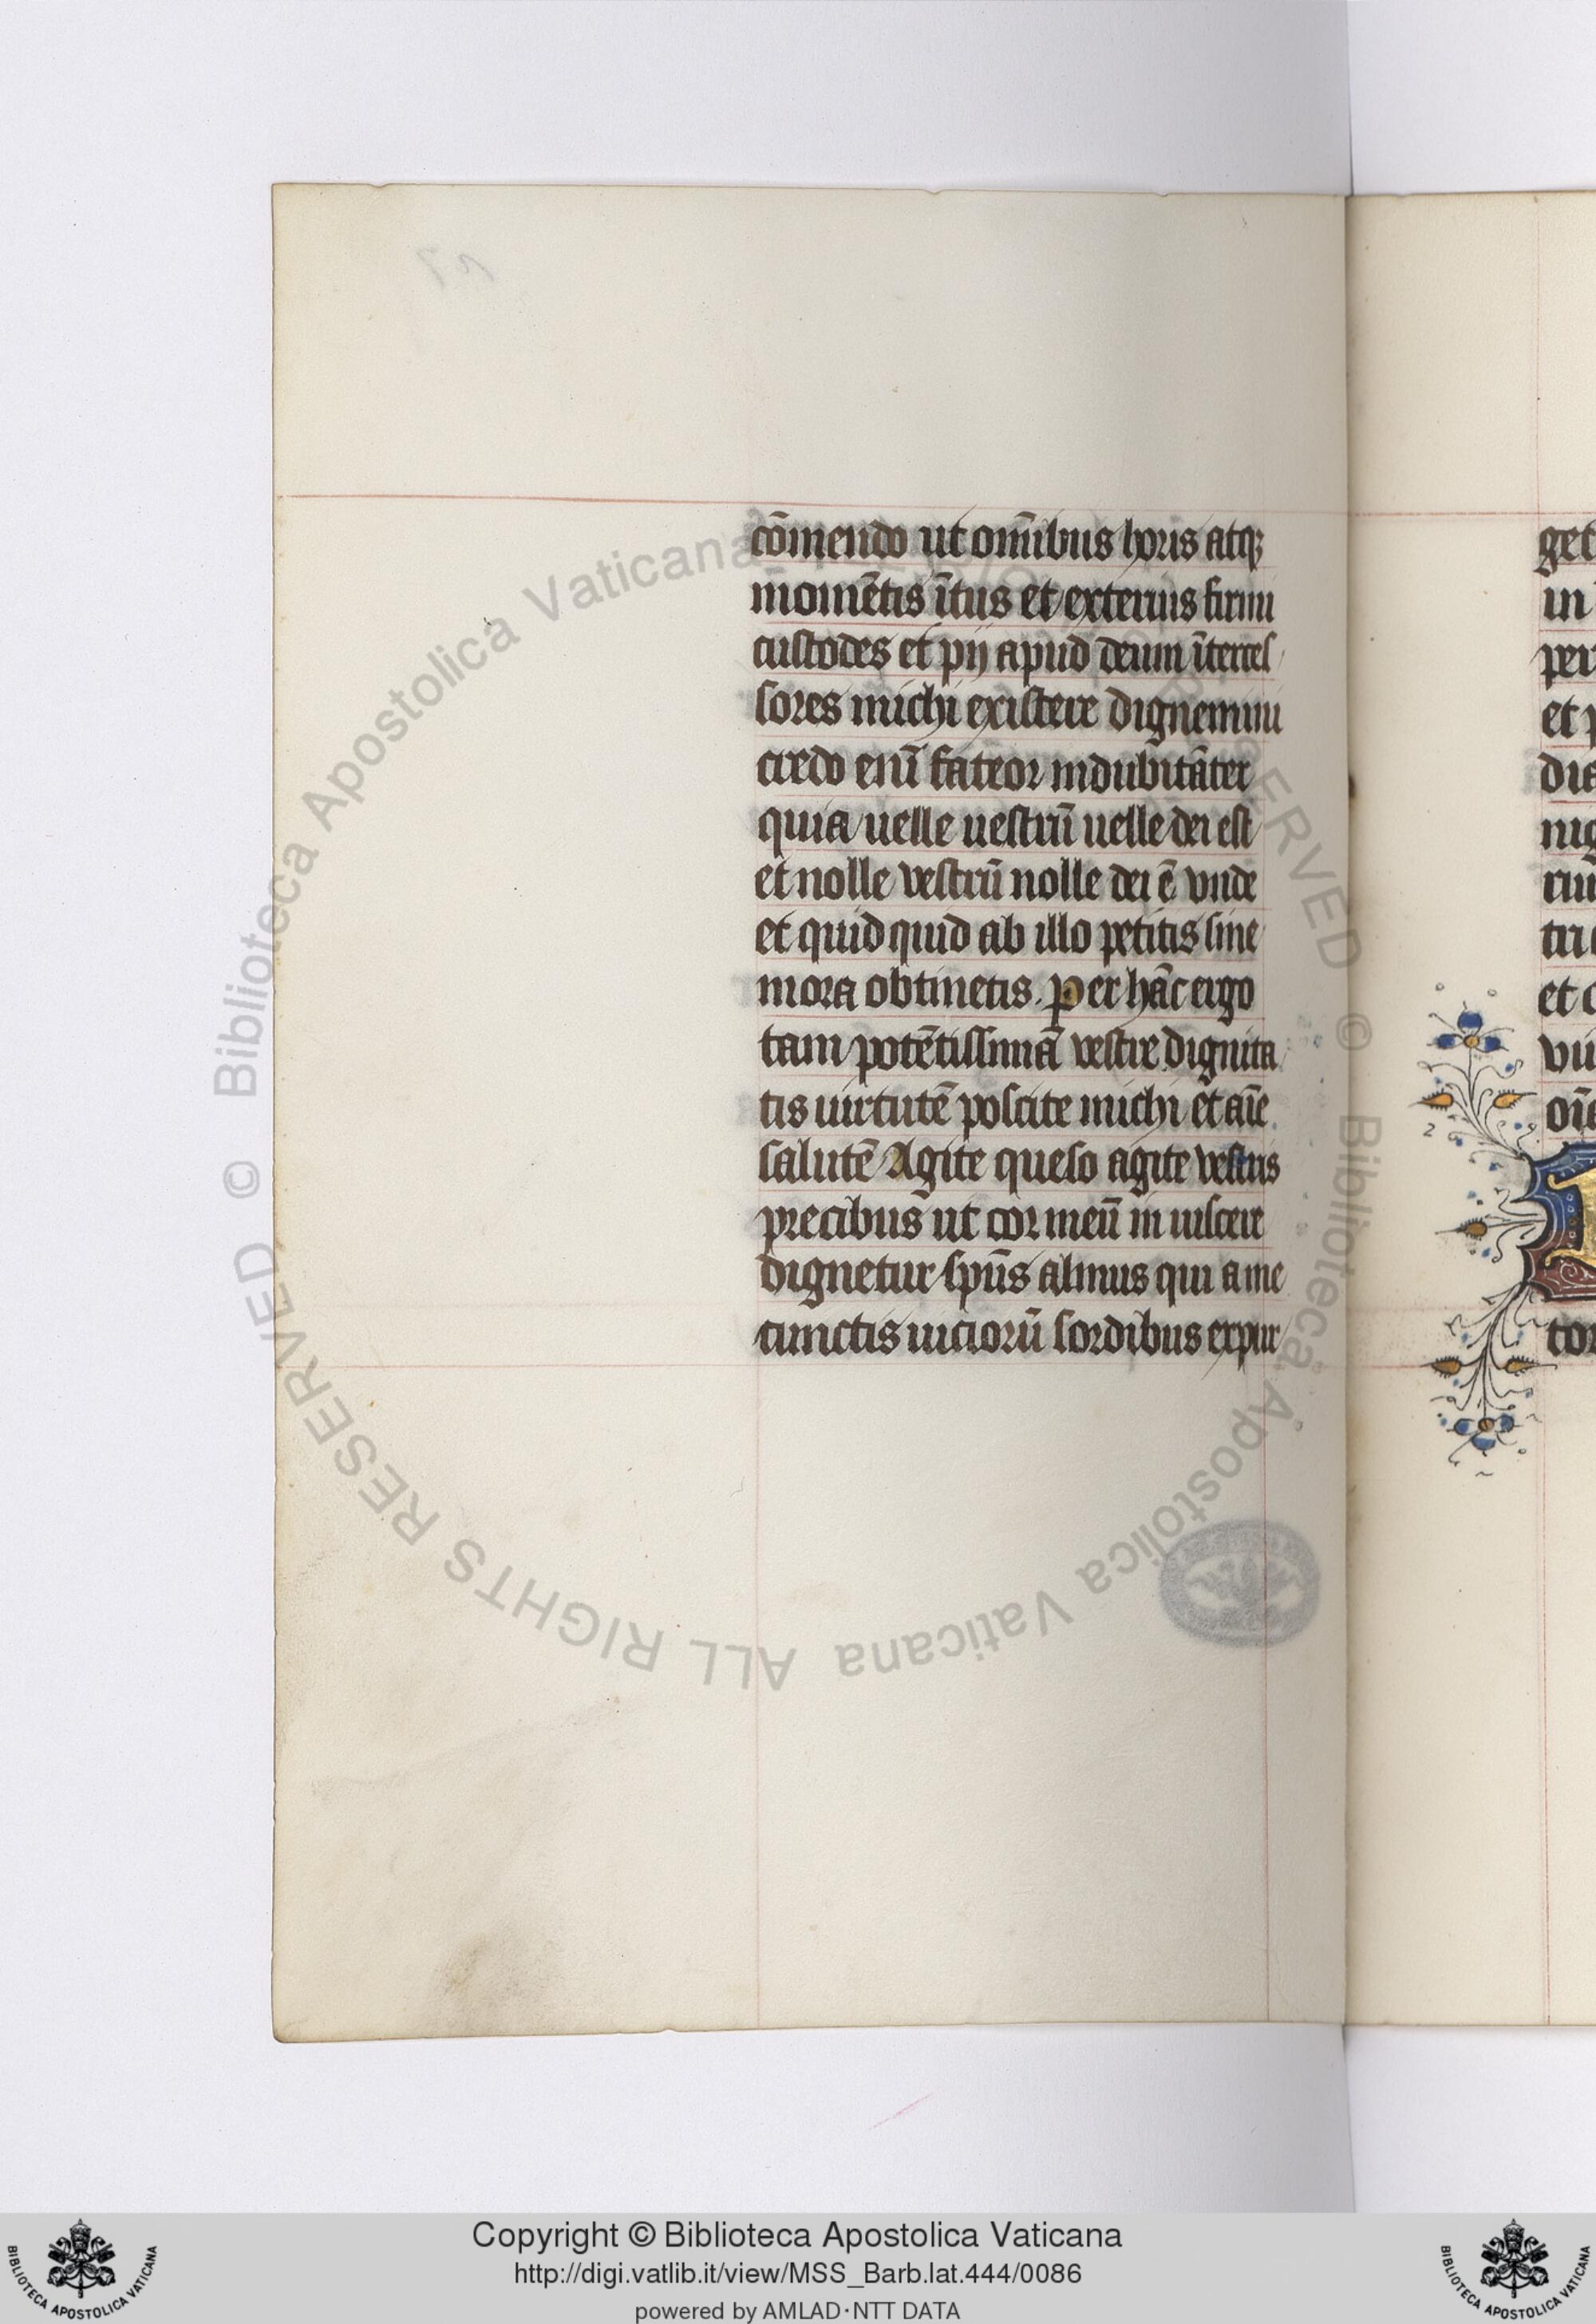 cōmendo ut om̄ibus horis atq;
momētis ītus et exterius firmi
custodes et pij apud deum īterces
sores michi existere dignemini
credo enī fateor indubitāter
quia uelle uestrū uelle dei est
et nolle vestrū nolle dei ē vnde
et quid quid ab illo petitis sine
mora obtinetis. Per hāc ergo
tam potētissimā vestre dignita
tis uirtutē poscite michi et aīe
salutē Agite queso agite vestris
precibus ut cor meū in uiscere
dignetur spūs almus qui a me
cunctis uiciorū sordibus expur
get
in
per
et p
dia
nig
riū
tri
et c
vii
tor
© Biblioteca Apostolica Vaticana ALL RIGHTS RESERVED © Biblioteca Apostolica Vaticana ALL RIGHTS RESERVED
Copyright © Biblioteca Apostolica Vaticana
http://digi.vatlib.it/view/MSS_Barb.lat.444/0086
powered by AMLAD·NTT DATA
BIBLIOTECA APOSTOLICA VATICANA
BIBLIOTECA APOSTOLICA VATICANA